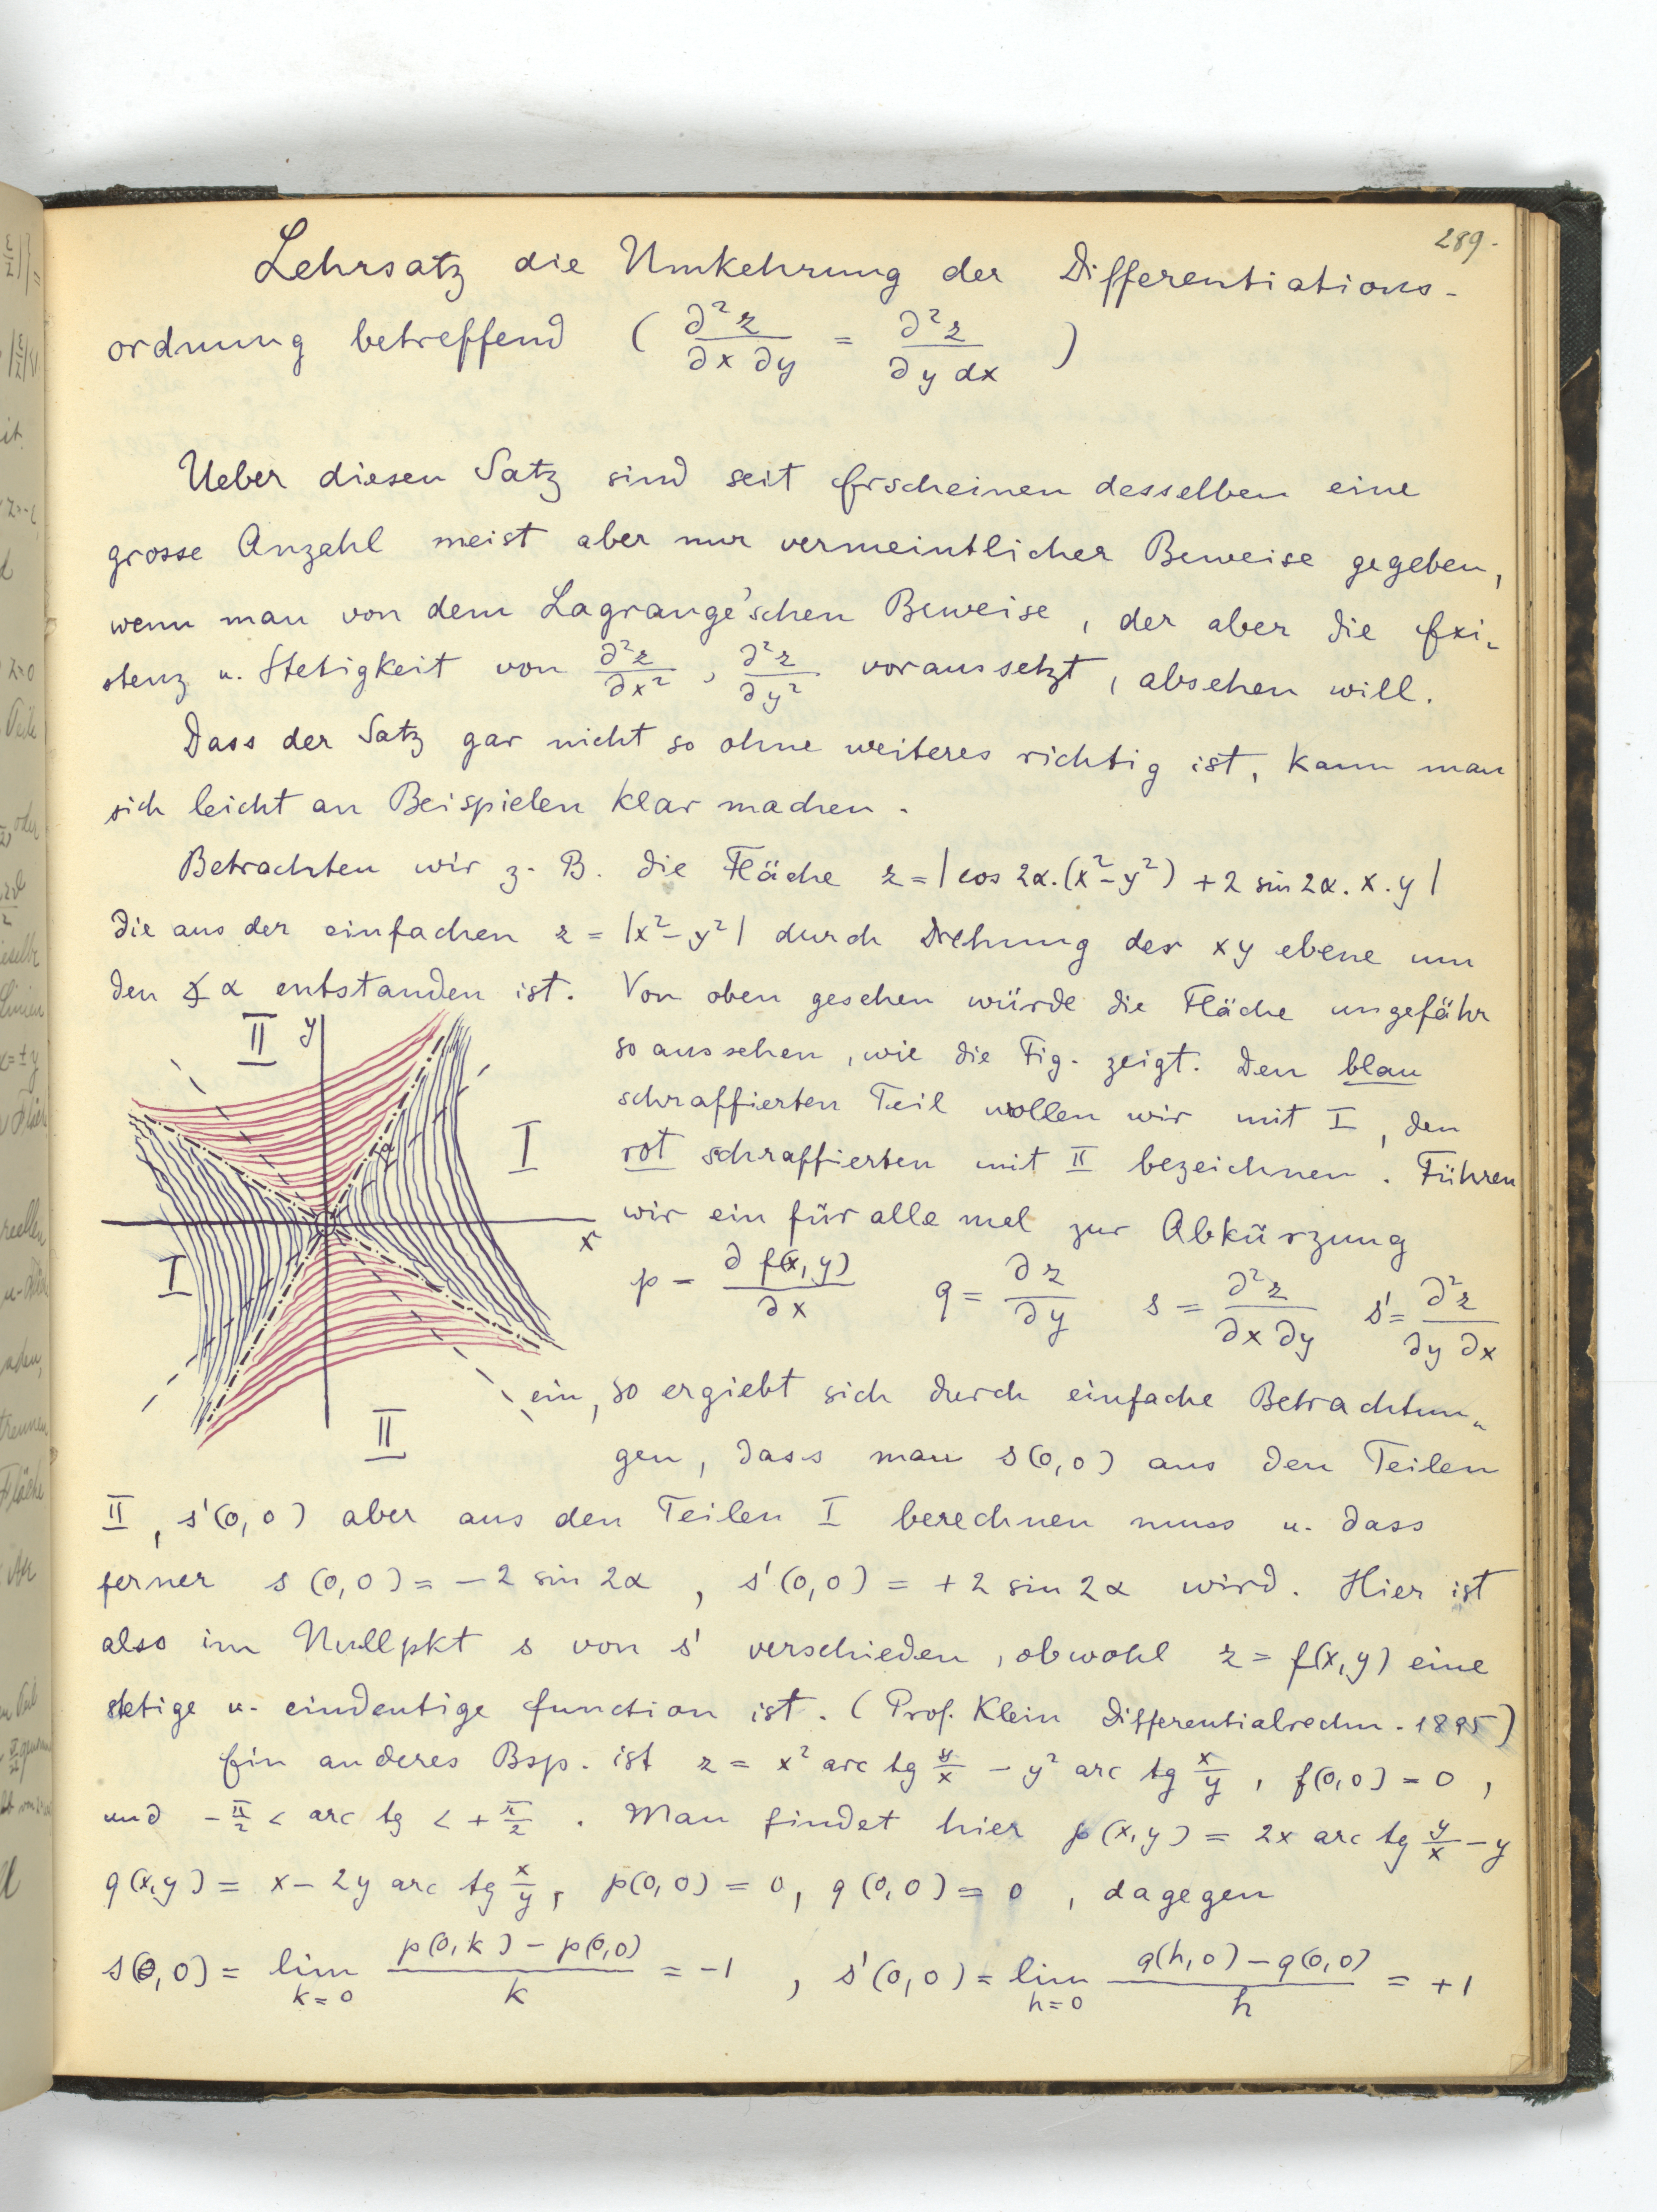 289.
Lehrsatz die Umkehrung der Differentiations-
ordnung betreffend ( ∂²z/∂x ∂y = ∂²z/∂y dx )
Ueber diesen Satz sind seit Erscheinen desselben eine
grosse Anzahl meist aber nur vermeintlicher Beweise gegeben,
wenn man von dem Lagrange'schen Beweise, der aber die Exi-
stenz u. Stetigkeit von ∂²z/∂x², ∂²z/∂y² voraussetzt, absehen will.
Dass der Satz gar nicht so ohne weiteres richtig ist, kann man
sich leicht an Beispielen klar machen.
Betrachten wir z. B. die Fläche z = |cos 2α.(x²-y²) + 2 sin 2α. x. y|
die aus der einfachen z = |x²-y²| durch Drehung der xy ebene um
den ∡ α entstanden ist. Von oben gesehen würde die Fläche ungefähr
so aussehen, wie die Fig. zeigt. Den blau
schraffierten Teil wollen wir mit I, den
rot schraffierten mit II bezeichnen. Führen
wir ein für alle mal zur Abkürzung
p = ∂ f(x,y)/∂x q = ∂z/∂y s = ∂²z/∂x ∂y s' = ∂²z/∂y ∂x
ein, so ergiebt sich durch einfache Betrachtun-
gen, dass man s(0,0) aus den Teilen
II, s'(0,0) aber aus den Teilen I berechnen muss u. dass
ferner s(0,0) = -2 sin 2α, s'(0,0) = +2 sin 2α wird. Hier ist
also im Nullpkt s von s' verschieden, obwohl z = f(x,y) eine
stetige u. eindeutige function ist. (Prof. Klein Differentialrechn. 1895)
Ein anderes Bsp. ist z = x² arc tg y/x - y² arc tg x/y, f(0,0) = 0,
und -π/2 < arc tg < +π/2. Man findet hier p(x,y) = 2x arc tg y/x - y
q(x,y) = x - 2y arc tg x/y, p(0,0) = 0, q(0,0) = 0, dagegen
s(0,0) = lim k=0 p(0,k) - p(0,0)/k = -1, s'(0,0) = lim h=0 q(h,0) - q(0,0)/h = +1
II y
I
α
x
I
II